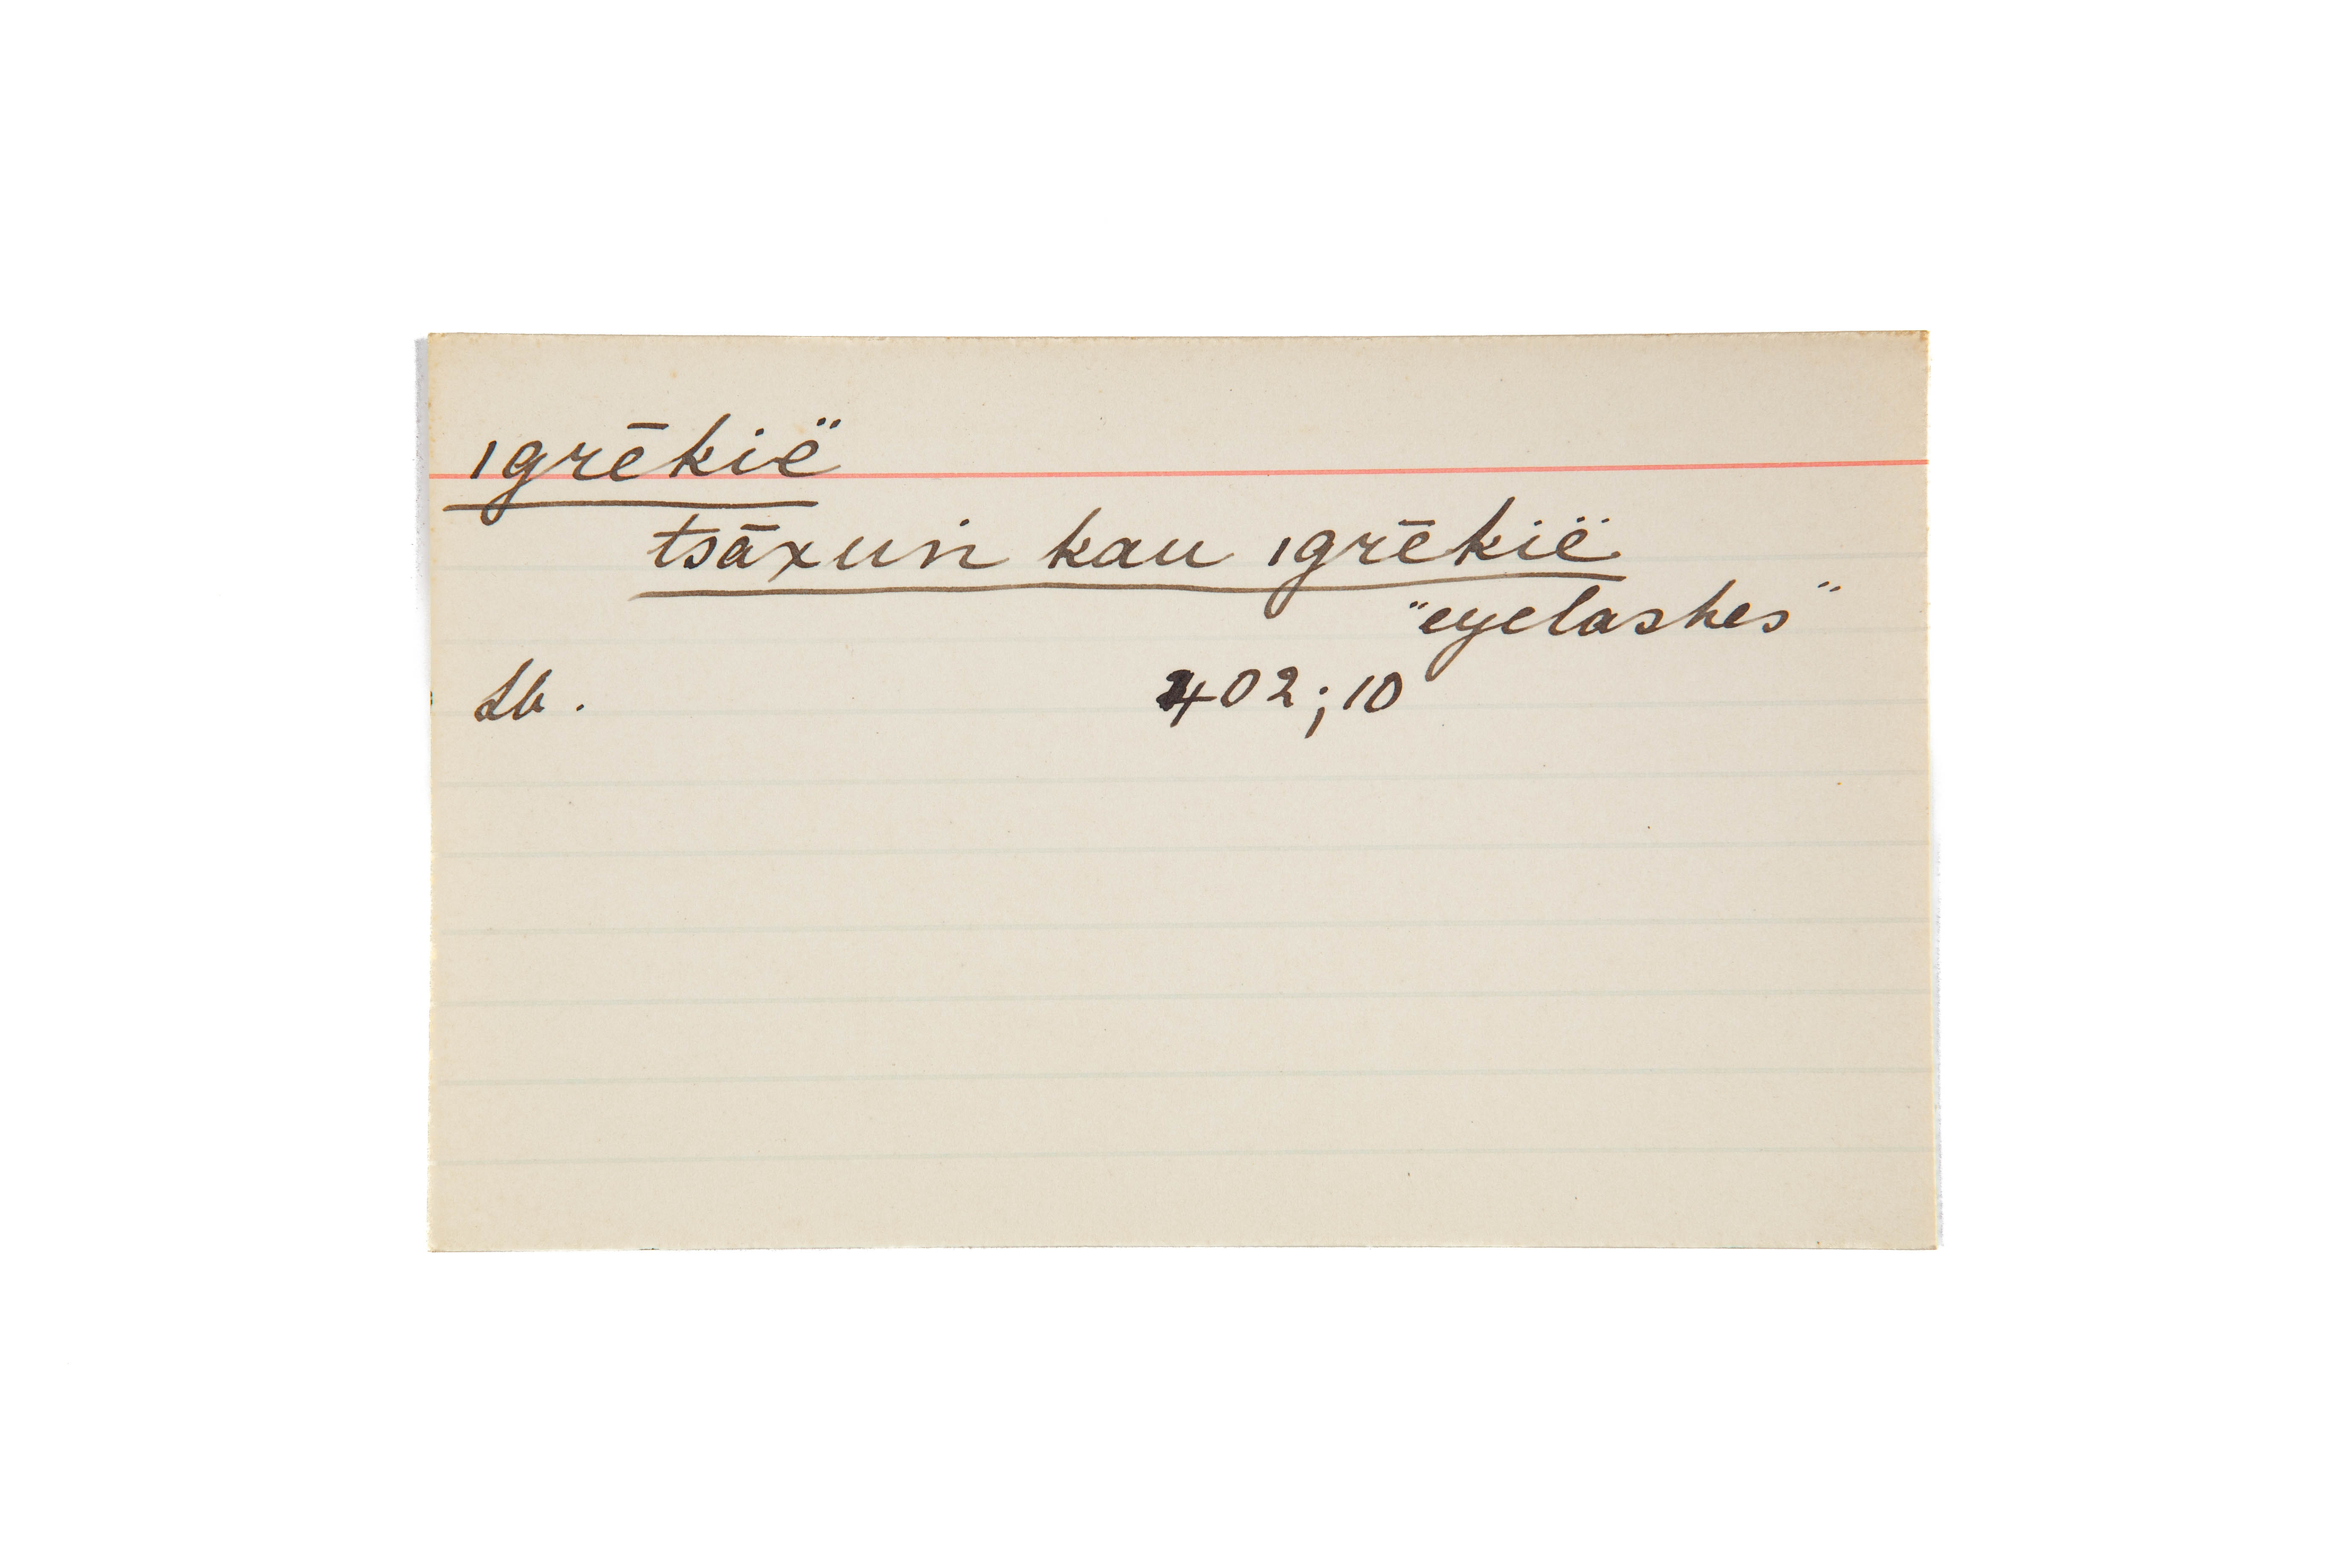 ıgrēkïë
tsāxun kau ıgrēkïë
"eyelashes"
Lb. 402; 10